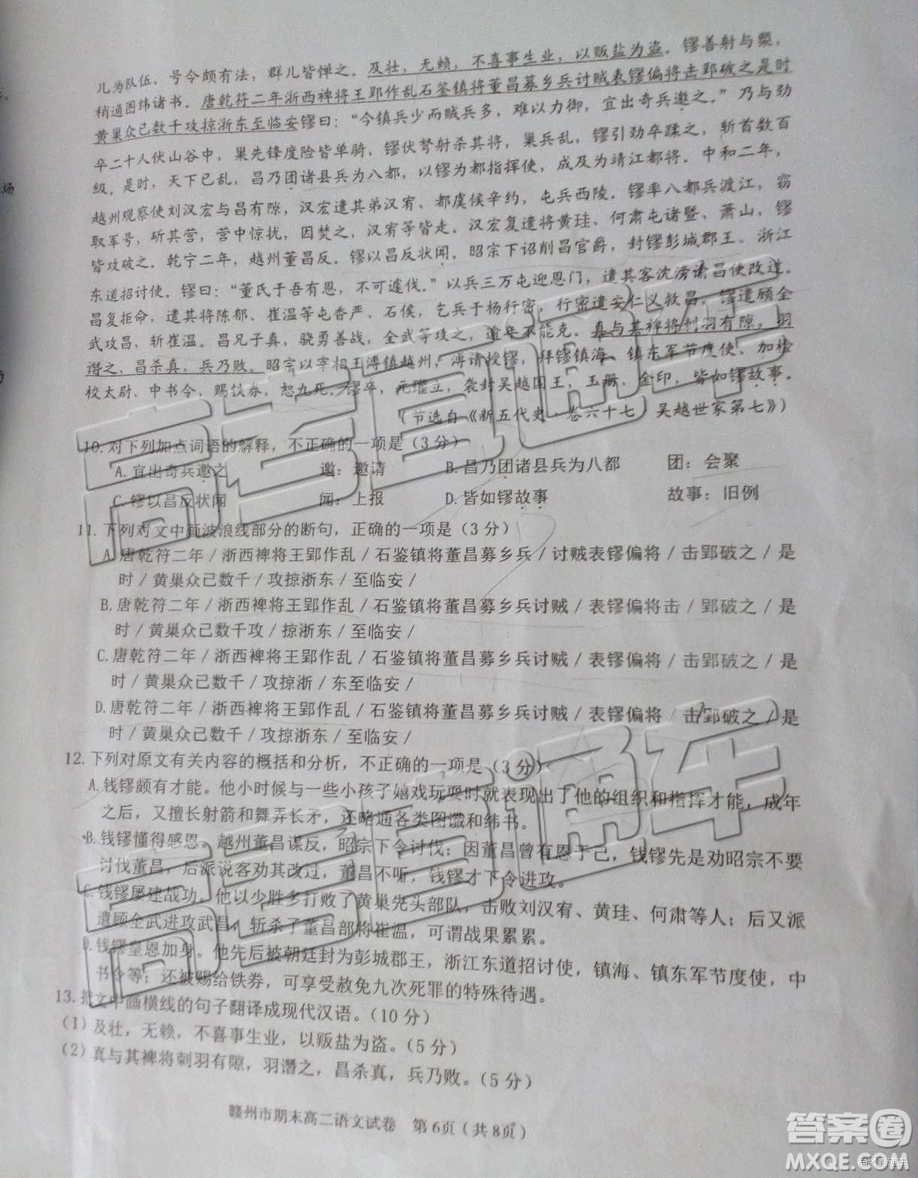 儿为队伍，号令颇有法，群儿皆惮之。及壮，无赖，不喜事生业，以贩盐为盗。镠善射与槊，
稍通图纬诸书。唐乾符二年浙西裨将王郢作乱石鉴镇将董昌募乡兵讨贼表镠偏将击郢破之是时
黄巢众已数千攻掠浙东至临安镠曰：“今镇兵少而贼兵多，难以力御，宜出奇兵邀之。”乃与劲
卒二十人伏山谷中，巢先锋度险皆单骑，镠伏弩射杀其将，巢兵乱，镠引劲卒蹂之，斩首数百
级。是时，天下已乱，昌乃团诸县兵为八都，以镠为都指挥使，成及为靖江都将。中和二年，
越州观察使刘汉宏与昌有隙，汉宏遣其弟汉宥、都虞候辛约，屯兵西陵。镠率八都兵渡江，窃
取军号，斫其营，营中惊扰，因焚之，汉宥等皆走。汉宏复遣将黄珪、何肃屯诸暨、萧山，镠
皆攻破之。乾宁二年，越州董昌反。镠以昌反状闻，昭宗下诏削昌官爵，封镠彭城郡王，浙江
东道招讨使。镠曰：“董氏于吾有恩，不可遽伐。”以兵三万屯迎恩门，遣其客沈滂谕昌使改过。
昌复拒命，遣其将陈郁、崔温等屯香严、石侯，乞兵于杨行密，行密遣安仁义救昌。镠遣顾全
武攻昌，斩崔温。昌兄子真，骁勇善战，全武等攻之，逾年不能克。真与其裨将刺羽有隙，羽
谮之，昌杀真，兵乃败。昭宗以宰相王溥镇越州，溥请授镠，拜镠镇海、镇东军节度使、加检
校太尉、中书令，赐铁券，恕九死。镠卒，元瓘立，袭封吴越国王，玉册、金印，皆如镠故事。
（节选自《新五代史·卷六十七 吴越世家第七》）
10.对下列加点词语的解释，不正确的一项是（3分）
A.宜出奇兵邀之 邀：邀请 B.昌乃团诸县兵为八都 团：会聚
C.镠以昌反状闻 闻：上报 D.皆如镠故事 故事：旧例
11.下列对文中画波浪线部分的断句，正确的一项是（3分）
A.唐乾符二年/浙西裨将王郢作乱/石鉴镇将董昌募乡兵/讨贼表镠偏将/击郢破之/是
时/黄巢众已数千/攻掠浙东/至临安/
B.唐乾符二年/浙西裨将王郢作乱/石鉴镇将董昌募乡兵讨贼/表镠偏将击/郢破之/是
时/黄巢众已数千攻/掠浙东/至临安/
C.唐乾符二年/浙西裨将王郢作乱/石鉴镇将董昌募乡兵讨贼/表镠偏将/击郢破之/是
时/黄巢众已数千/攻掠浙/东至临安/
D.唐乾符二年/浙西裨将王郢作乱/石鉴镇将董昌募乡兵讨贼/表镠偏将/击郢破之/是
时/黄巢众已数千/攻掠浙东/至临安/
12.下列对原文有关内容的概括和分析，不正确的一项是（3分）
A.钱镠颇有才能。他小时候与一些小孩子嬉戏玩耍时就表现出了他的组织和指挥才能，成年
之后，又擅长射箭和舞弄长矛，还略通各类图谶和纬书。
B.钱镠懂得感恩。越州董昌谋反，昭宗下令讨伐；因董昌曾有恩于己，钱镠先是劝昭宗不要
讨伐董昌，后派说客劝其改过，董昌不听，钱镠才下令进攻。
C.钱镠屡建战功。他以少胜多打败了黄巢先头部队，击败刘汉宥、黄珪、何肃等人；后又派
遣顾全武进攻武昌，斩杀了董昌部将崔温，可谓战果累累。
D.钱镠皇恩加身。他先后被朝廷封为彭城郡王，浙江东道招讨使，镇海、镇东军节度使，中
书令等；还被赐给铁券，可享受赦免九次死罪的特殊待遇。
13.把文中画横线的句子翻译成现代汉语。（10分）
（1）及壮，无赖，不喜事生业，以贩盐为盗。（5分）
（2）真与其裨将刺羽有隙，羽谮之，昌杀真，兵乃败。（5分）
赣州市期末高二语文试卷 第6页（共8页）
高考直通车
高考直通车
答案圈
MXQE.COM
场